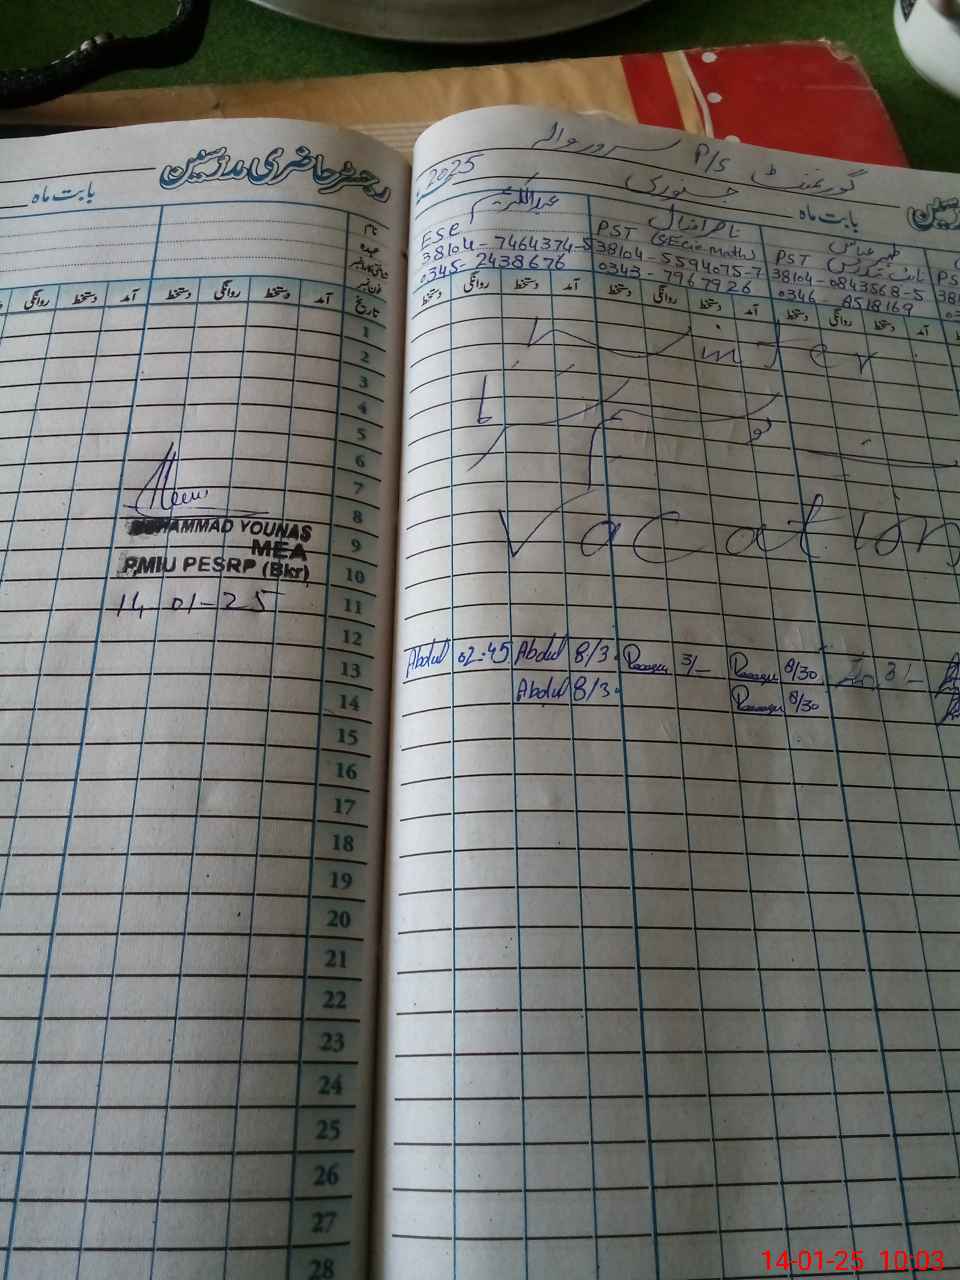 رجسٹر حاضری مدرسین
بابت ماہ
نام
عہدہ
شناختی کارڈ نمبر
فون نمبر
تاریخ آمد دستخط روانگی دستخط آمد دستخط روانگی
1
2
3
4
5
6
7
8
9
10
11
12
13
14
15
16
17
18
19
20
21
22
23
24
25
26
27
28
MUHAMMAD YOUNAS
MEA
PMIU PESRP (Bkr)
14-01-25
گورنمنٹ P/S سرور والہ
بابت ماہ جنوری 2025
ظہر عباس
PST
38104-0843568-5
0346-8518169
ناصر اقبال
PST (SEcie-math)
38104-5594075-7
0343-7967926
عبدالکریم
ESE
38104-7464374-5
0345-2438676
آمد دستخط روانگی دستخط آمد دستخط روانگی دستخط آمد دستخط روانگی دستخط
Winter
Vacation
Abdul 02:45 Abdul 8/30 3/- 8/30 3/-
Abdul 8/30 8/30
14-01-25 10:03